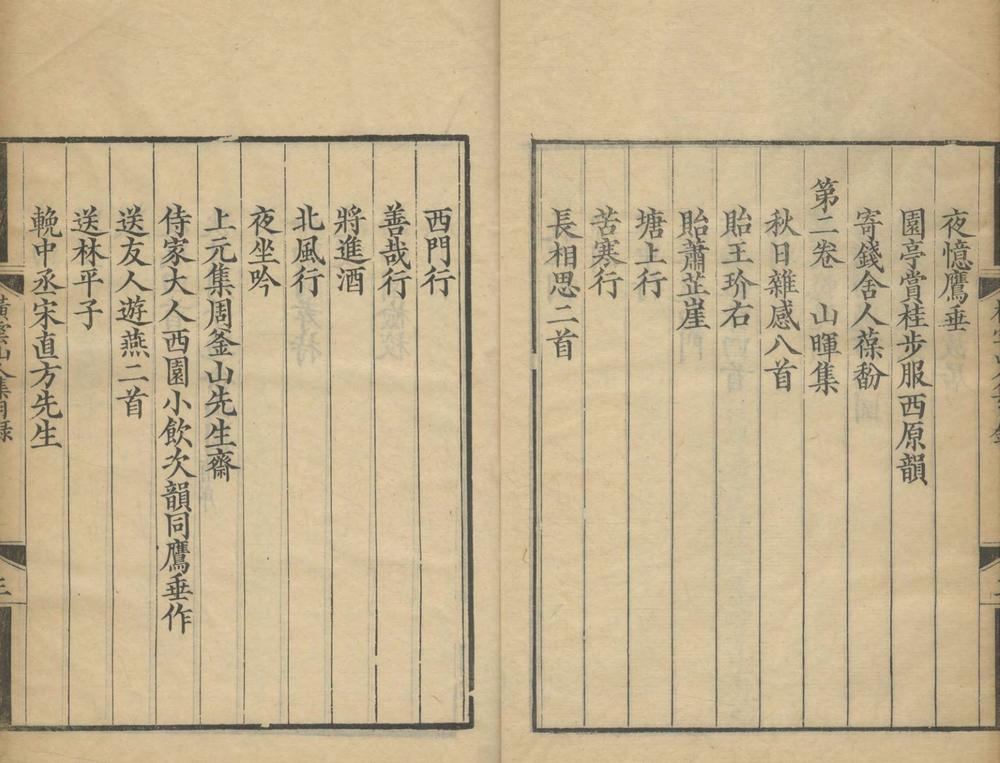 夜憶鷹垂
園亭賞桂步服西原韻
寄錢舍人葆馚
第二卷　山暉集
秋日雜感八首
貽王玠右
貽蕭芷崖
塘上行
苦寒行
長相思二首
西門行
善哉行
將進酒
北風行
夜坐吟
上元集周釜山先生齋
侍家大人西園小飲次韻同鷹垂作
送友人遊燕二首
送林平子
輓中丞宋直方先生
橫雲山人集目錄
三